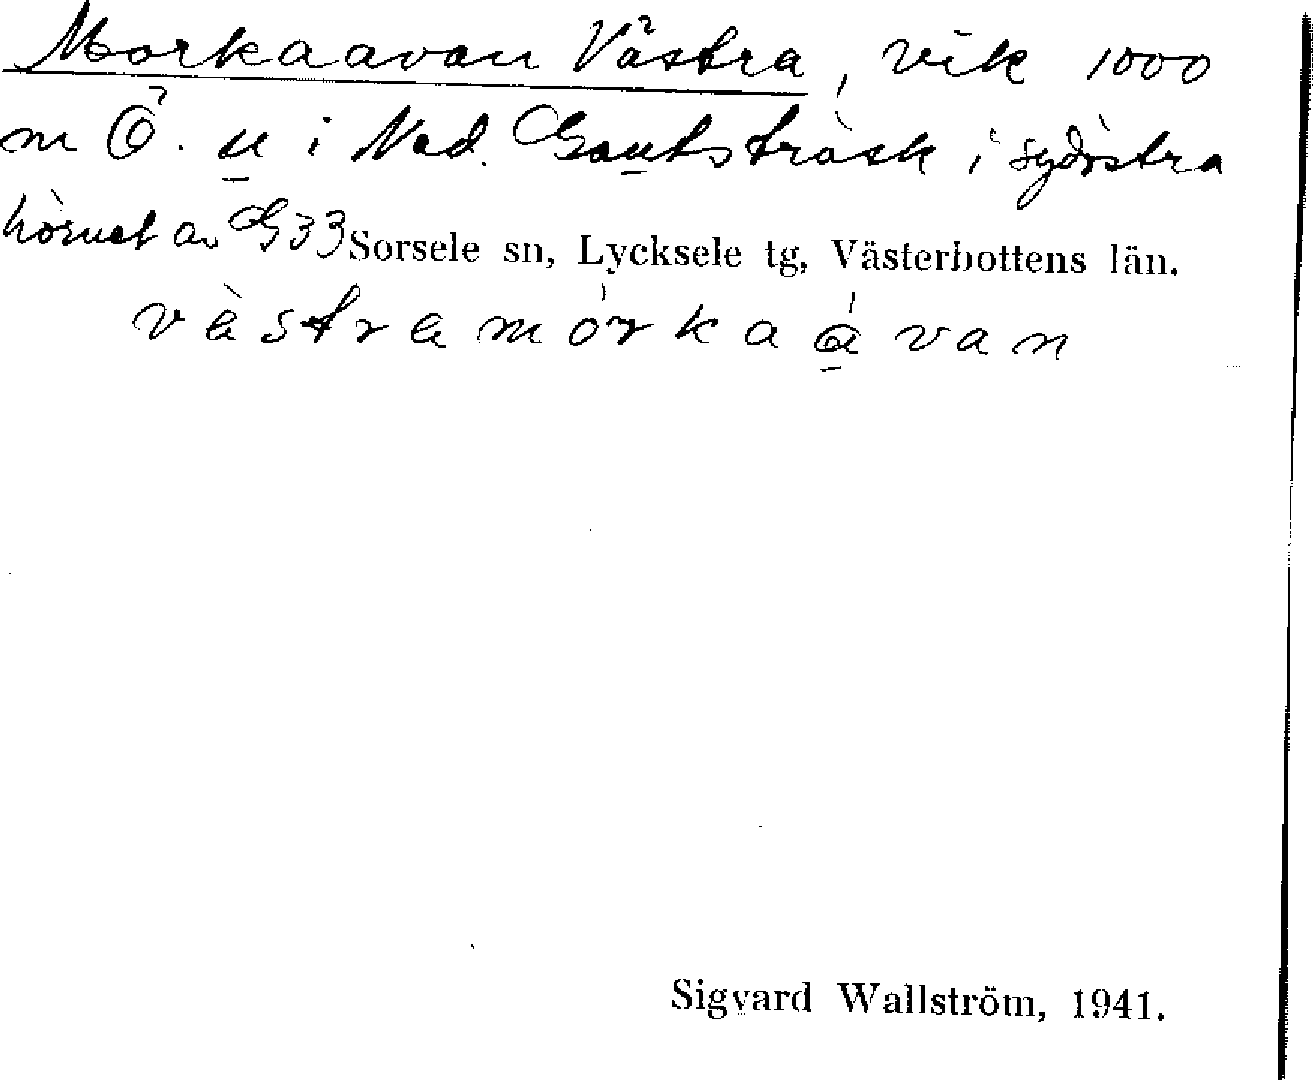 Morkaavan Västra, vik 1000
m Ö. u i Ned. Gautsträsk i sydöstra
hörnet av G33 Sorsele sn, Lycksele tg, Västerbottens län.
västramórkaávan
Sigvard Wallström, 1941.